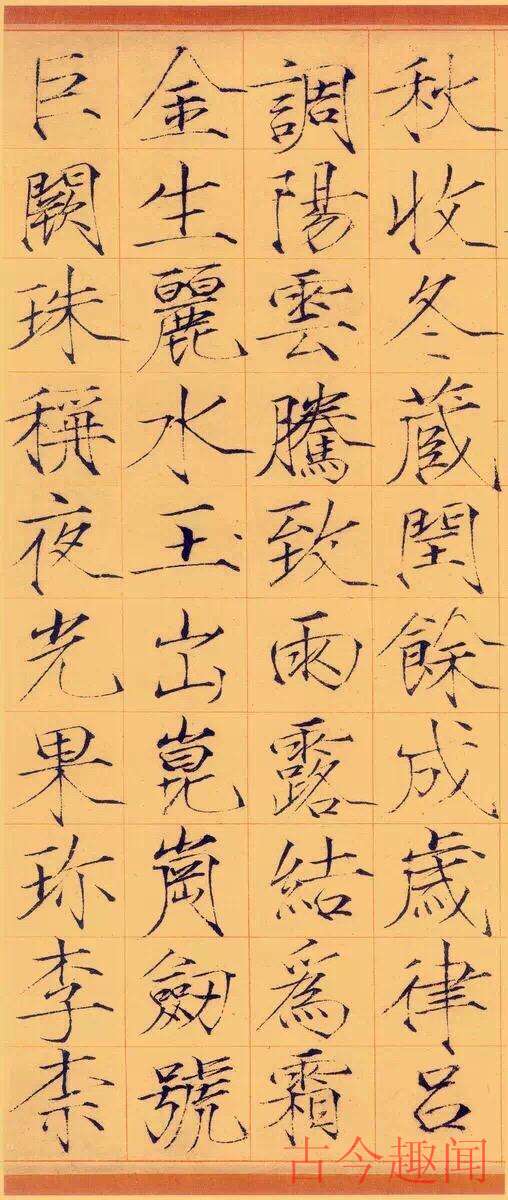 秋收冬蔵閏餘成歲律吕
調陽雲騰致雨露結為霜
金生麗水玉出崑崗劔號
巨闕珠稱夜光果珎李柰
古今趣闻